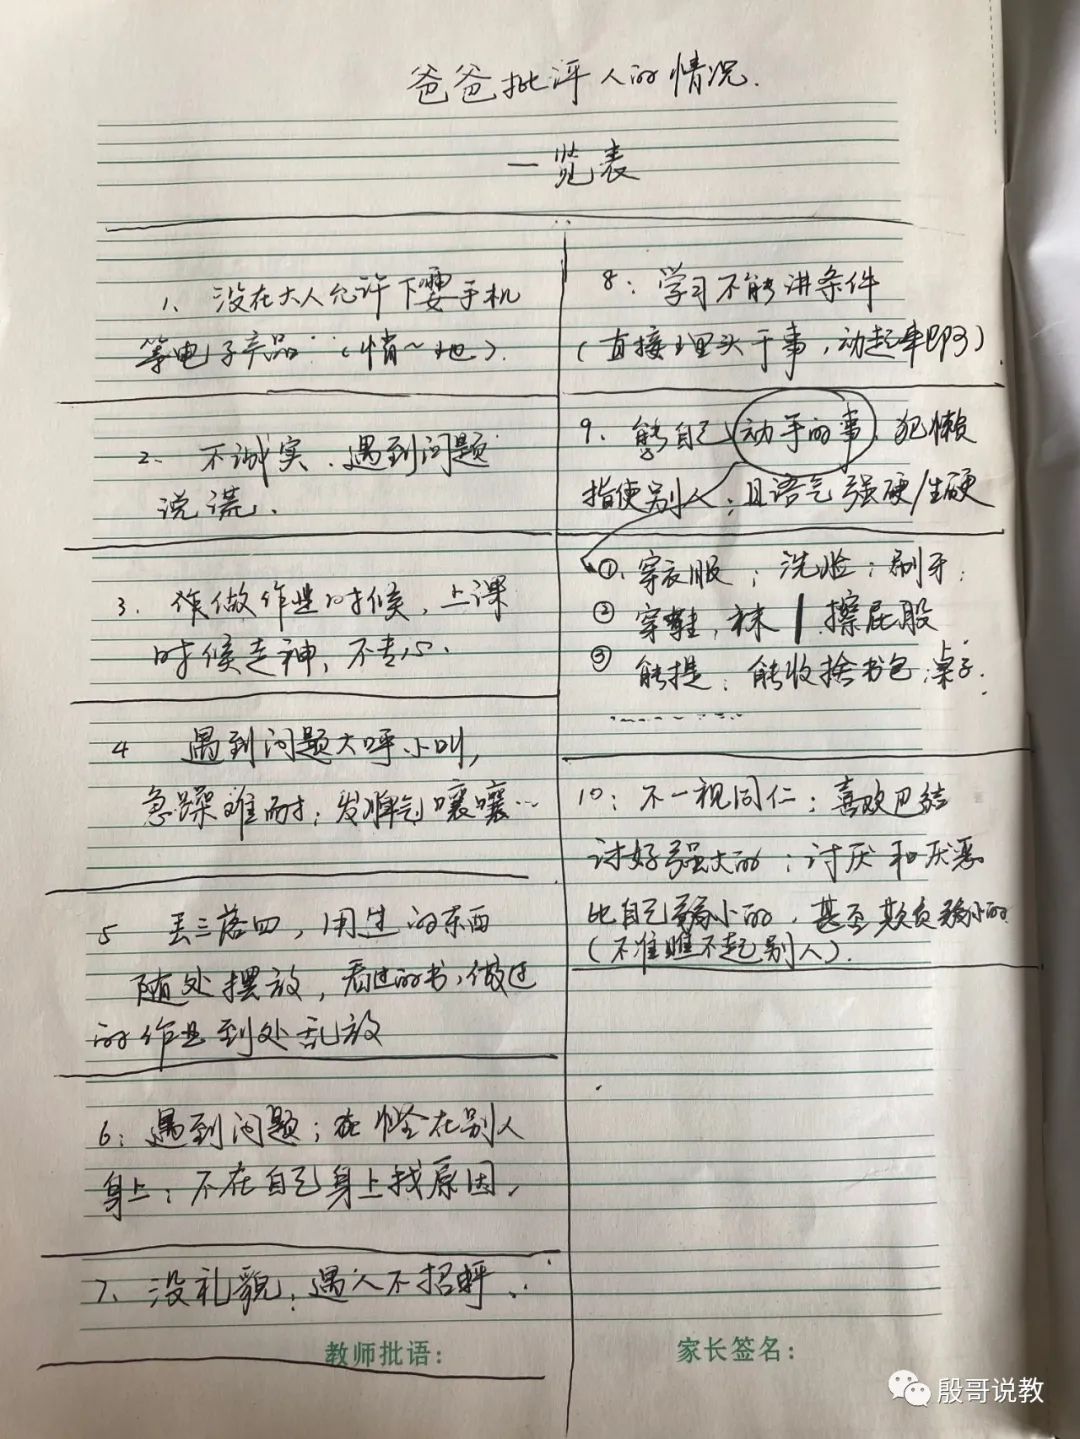 爸爸批评人的情况.
一览表
1、没在大人允许下要手机
等电子产品 (悄~地).
2、不诚实、遇到问题
说谎、
3、做作业时候、上课
时候走神、不专心.
4 遇到问题大呼小叫,
急躁难耐;发脾气嚷嚷…
5 丢三落四,用过的东西
随处摆放,看过的书、做过
的作业到处乱放
6: 遇到问题;怪在别人
身上;不在自己身上找原因,
7、没礼貌;遇人不招呼、
教师批语:
8: 学习不能讲条件
(直接埋头干事,动起来即可)
9、能自己动手的事、犯懒
指使别人;且语气强硬/生硬
①、穿衣服;洗脸;刷牙;
② 穿鞋,袜 擦屁股
③ 能提;能收拾书包;桌子.
10: 不一视同仁;喜欢巴结
讨好强大的;讨厌和厌恶
比自己弱小的、甚至欺负弱小的
(不准瞧不起别人).
家长签名:
殷哥说教